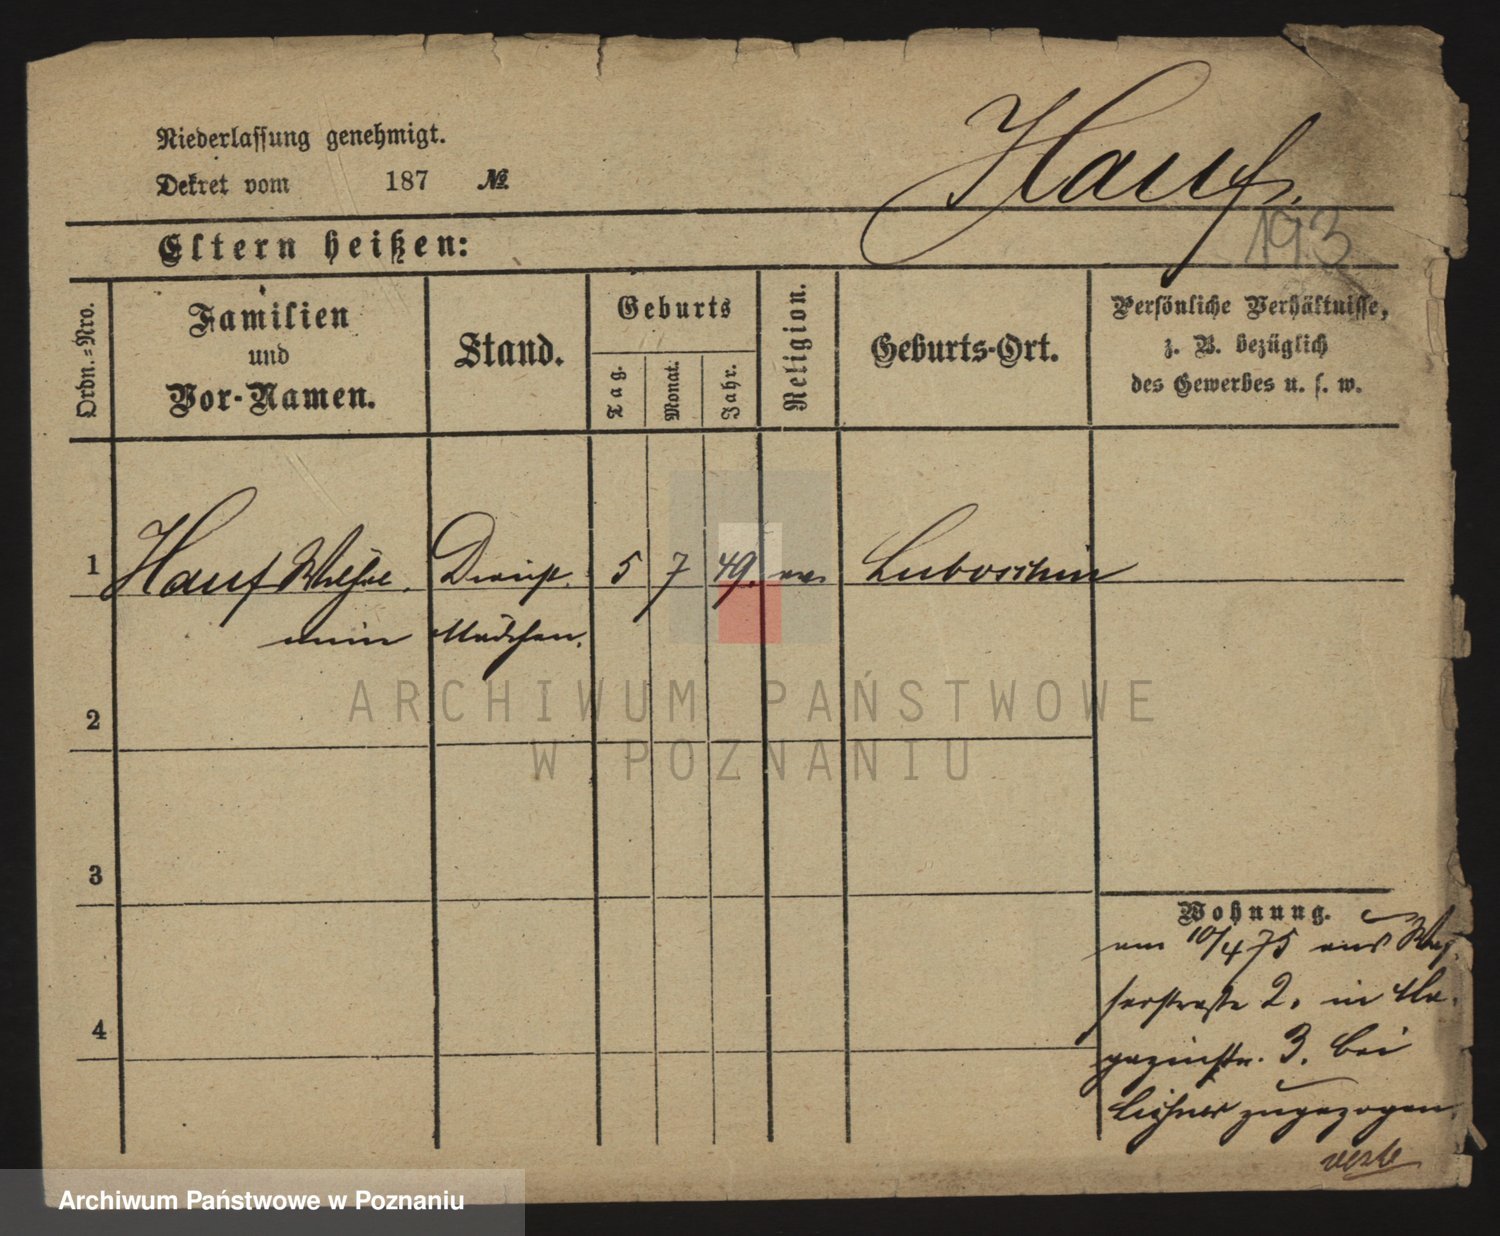 Niederlassung genehmigt.
Dekret vom 187 №
Hauf.
193
Eltern heißen:
Ordn.=Nro.
Familien
und
Vor-Namen.
Stand.
Geburts
Tag.
Monat.
Jahr.
Religion.
Geburts-Ort.
Persönliche Verhältnisse,
z. B. bezüglich
des Gewerbes u. s. w.
1 Hauf Wilhel. Dienst. 5 7 49. ev. Luboschin
mine Mädchen.
2
3
4
Wohnung.
am 10/4 75 aus Was
serstraße 2. in Ma.
gazinstr. 3. bei
zugezogen.
ARCHIWUM PAŃSTWOWE
W POZNANIU
Archiwum Państwowe w Poznaniu